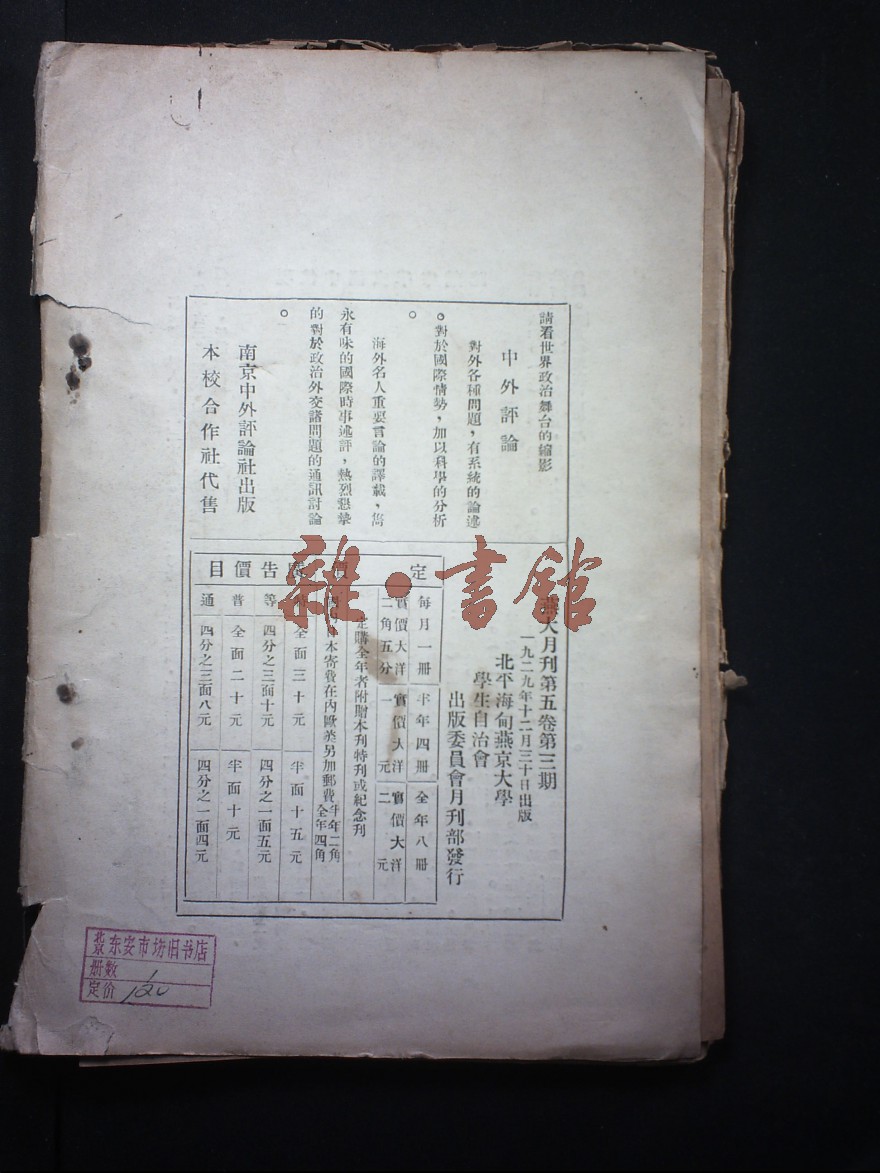 請看世界政治舞台的縮影
中外評論
對外各種問題，有系統的論述
。對於國際情勢，加以科學的分析
。
海外名人重要言論的譯載，雋
永有味的國際時事述評，熱烈懇摯
的對於政治外交諸問題的通訊討論
。
南京中外評論社出版
本校合作社代售
燕大月刊第五卷第三期
一九二九年十二月三十日出版
北平海甸燕京大學
學生自治會
出版委員會月刊部發行
定價
每月一冊 半年四冊 全年八冊
實價大洋二角五分 實價大洋一元 實價大洋二元
定購全年者附贈本刊特刊或紀念刊
本寄費在內歐美另加郵費半年二角全年四角
告價目
等 全面三十元 半面十五元
四分之三面十元 四分之一面五元
普通 全面二十元 半面十元
四分之三面八元 四分之一面四元
雜·書館
北京东安市场旧书店
册数 1
定价 120